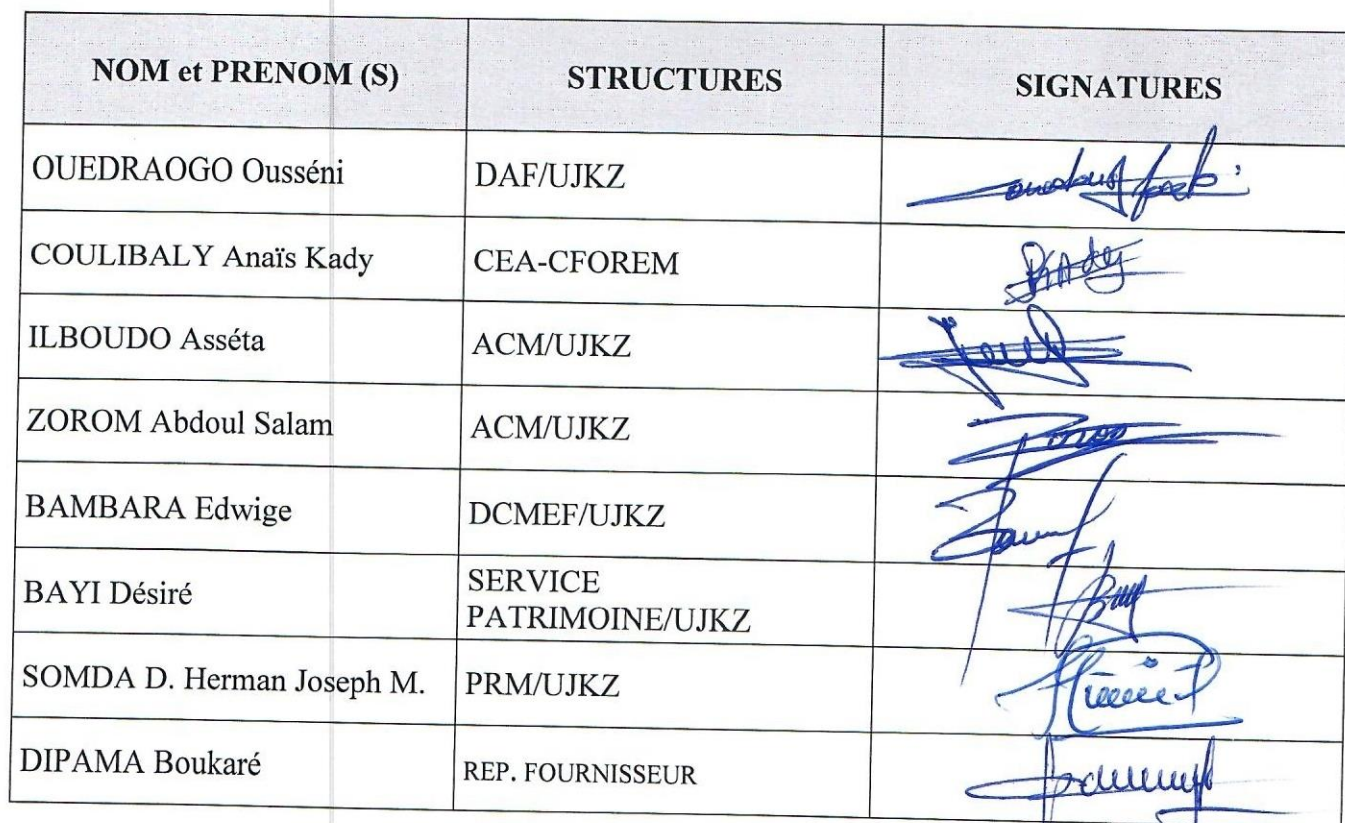 NOM et PRENOM (S) STRUCTURES SIGNATURES
OUEDRAOGO Ousséni DAF/UJKZ
COULIBALY Anaïs Kady CEA-CFOREM
ILBOUDO Asséta ACM/UJKZ
ZOROM Abdoul Salam ACM/UJKZ
BAMBARA Edwige DCMEF/UJKZ
BAYI Désiré SERVICE
PATRIMOINE/UJKZ
SOMDA D. Herman Joseph M. PRM/UJKZ
DIPAMA Boukaré REP. FOURNISSEUR